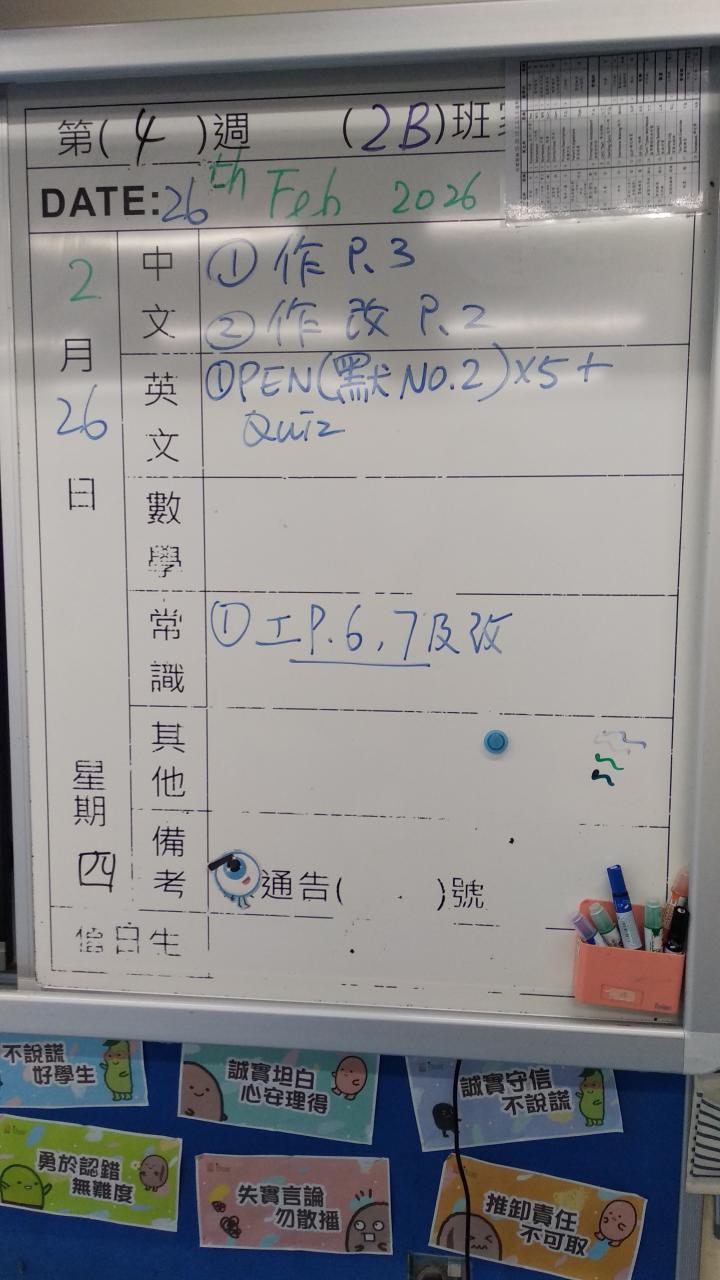 第( 4 )週 (2B)班
DATE:26th Feb 2026
2月26日
星期四
中文
① 作 P.3
② 作 改 P.2
英文
① PEN(默 NO.2)×5+
Quiz
數學
常識
① 工P.6,7及改
其他
備考
通告( )號
值日生
不說謊
好學生
誠實坦白
心安理得
誠實守信
不說謊
勇於認錯
無難度
失實言論
勿散播
推卸責任
不可取